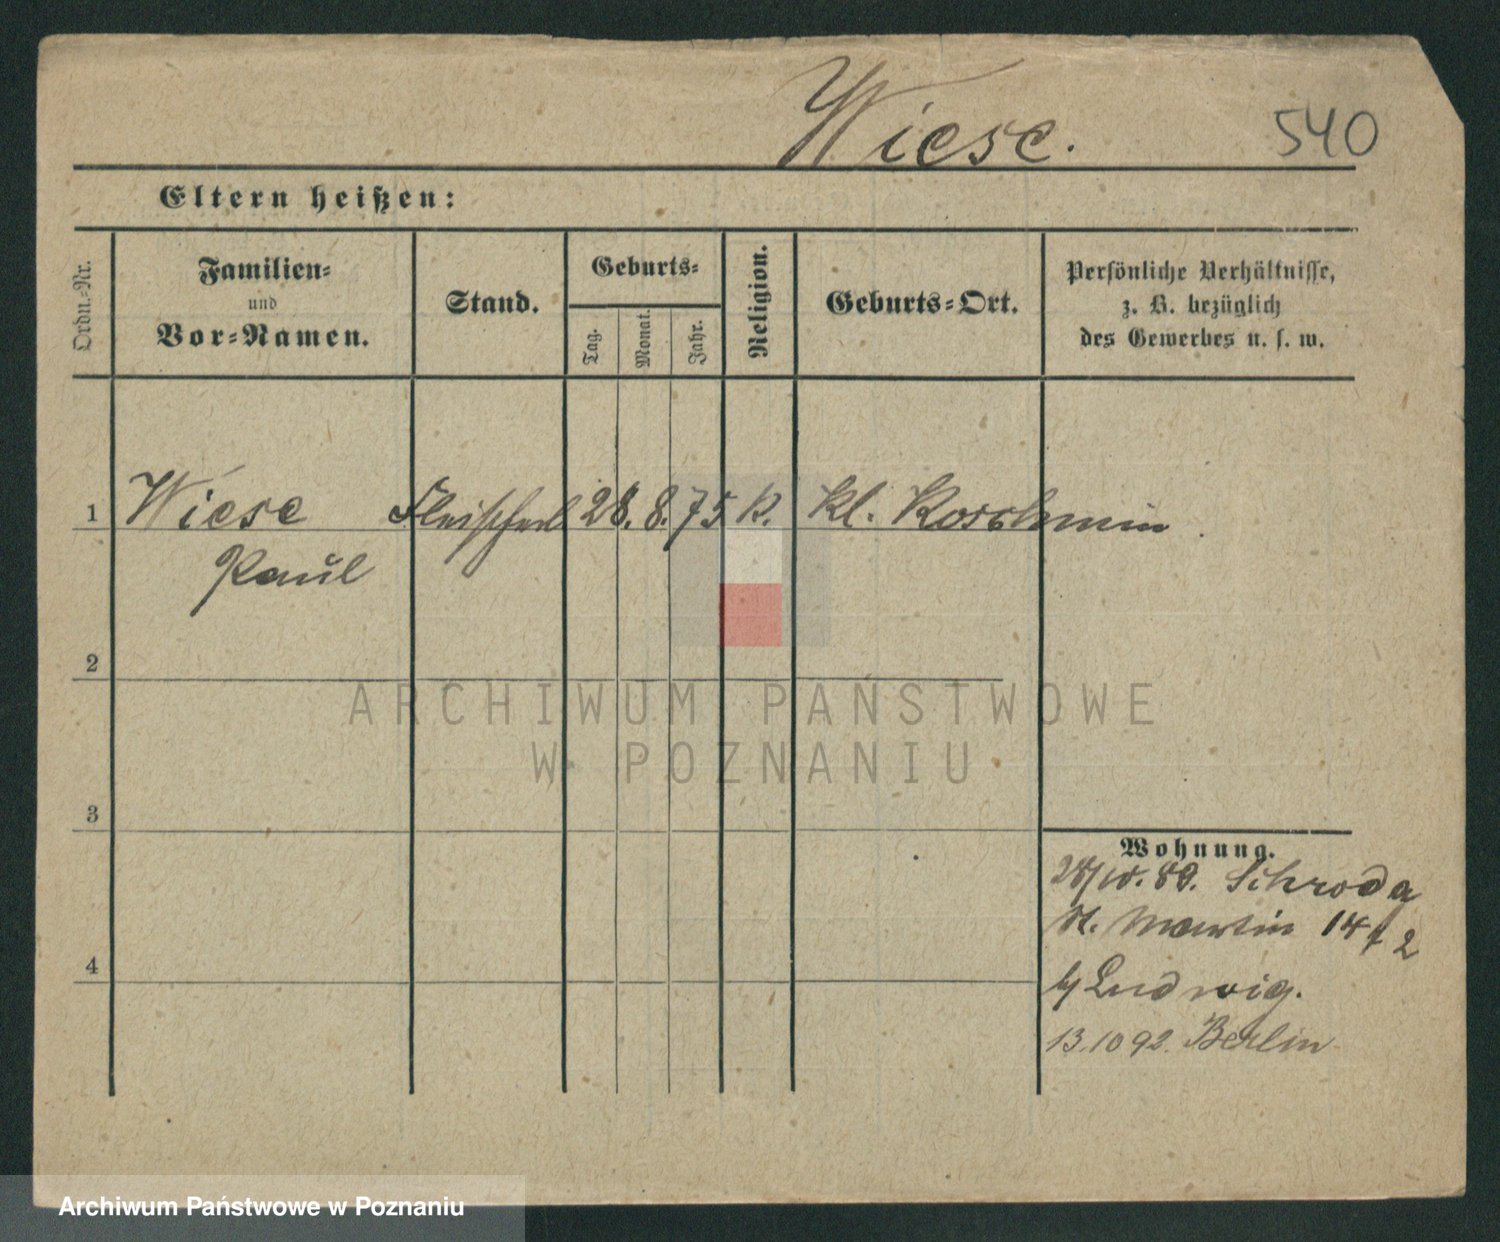 Wiese.
540
Eltern heißen:
Ordn.-Nr.
Familien-
und
Vor-Namen.
Stand.
Geburts-
Tag.
Monat.
Jahr.
Religion.
Geburts-Ort.
Persönliche Verhältnisse,
z. B. bezüglich
des Gewerbes u. s. w.
1 Wiese Fleischerl 28. 8. 75 K. Kl.
Paul
2
ARCHIWUM PAŃSTWOWE
W POZNANIU
3
Wohnung.
89. Schroda
St. Martin 14
Ludwig.
4
13.10 92. Berlin
Archiwum Państwowe w Poznaniu